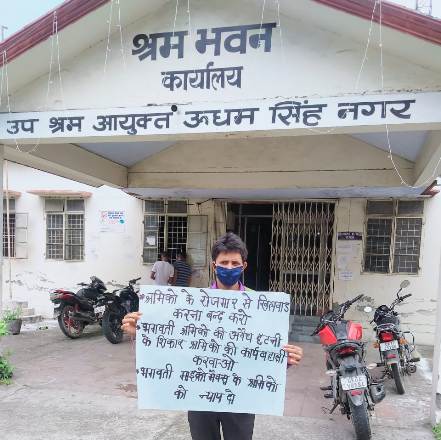 श्रम भवन
कार्यालय
उप श्रम आयुक्त ऊधम सिंह नगर
श्रमिकों के रोजगार से खिलवाड़
करना बन्द करो
• भगवती श्रमिकों की अवैध छटनी
के शिकार श्रमिकों की कार्यबहाली
करवाओ
• भगवती माइक्रोमैक्स के श्रमिकों
को न्याय दो